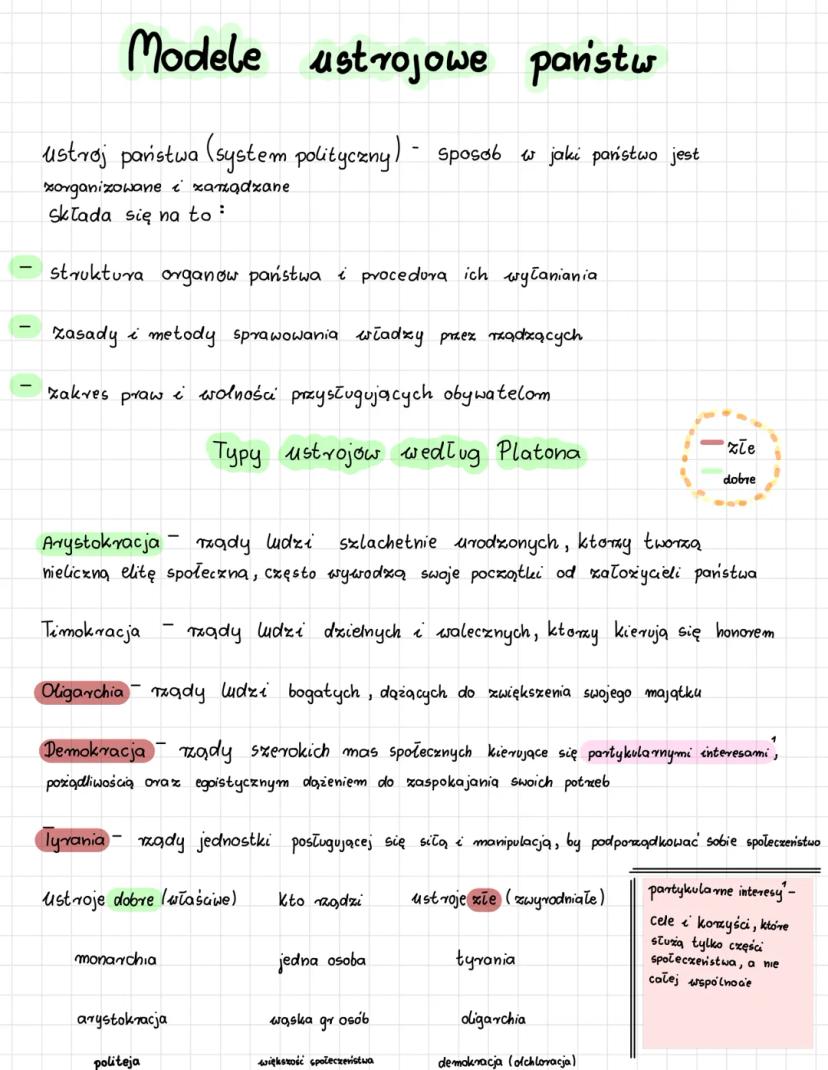 Modele ustrojowe państw
ustrój państwa (system polityczny) - sposób w jaki państwo jest
zorganizowane i zarządzane
Składa się na to :
- struktura organów państwa i procedura ich wyłaniania
- zasady i metody sprawowania władzy przez rządzących
- zakres praw i wolności przysługujących obywatelom
Typy ustrojów według Platona
— złe
— dobre
Arystokracja - rządy ludzi szlachetnie urodzonych, którzy tworzą
nieliczną elitę społeczna, często wywodzą swoje początki od założycieli państwa
Timokracja - rządy ludzi dzielnych i walecznych, którzy kierują się honorem
Oligarchia - rządy ludzi bogatych, dążących do zwiększenia swojego majątku
Demokracja - rządy szerokich mas społecznych kierujące się partykularnymi interesami¹,
pożądliwością oraz egoistycznym dążeniem do zaspokajania swoich potrzeb
Tyrania - rządy jednostki posługującej się siłą i manipulacją, by podporządkować sobie społeczeństwo
ustroje dobre (właściwe) kto rządzi ustroje złe (zwyrodniałe)
monarchia jedna osoba tyrania
arystokracja wąska gr osób oligarchia
politeja większość społeczeństwa demokracja (ochlokracja)
partykularne interesy¹ -
cele i korzyści, które
służą tylko części
społeczeństwa, a nie
całej wspólnocie